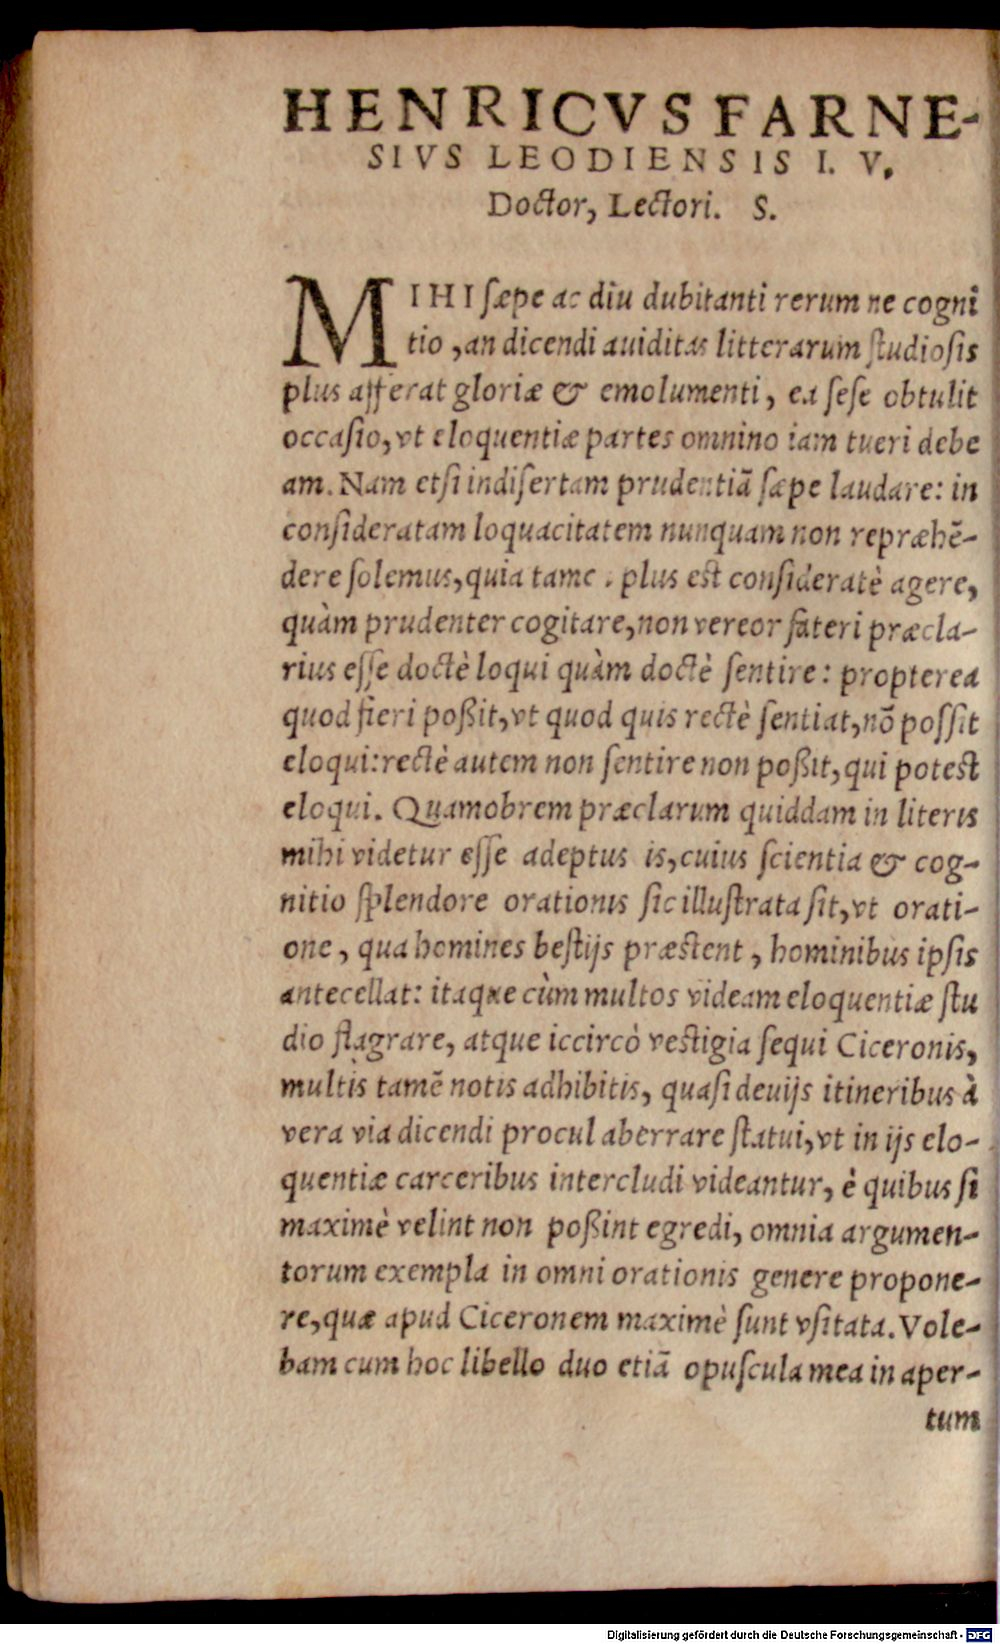 HENRICVS FARNE-
SIVS LEODIENSIS I. V.
Doctor, Lectori. S.
MIHI sæpe ac diu dubitanti rerum ne cogni
tio, an dicendi auiditas litterarum studiosis
plus afferat gloriæ & emolumenti, ea sese obtulit
occasio, vt eloquentiæ partes omnino iam tueri debe
am. Nam etsi indisertam prudentiã sæpe laudare: in
consideratam loquacitatem nunquam non repræhẽ-
dere solemus, quia tame . plus est consideratè agere,
quàm prudenter cogitare, non vereor fateri præcla-
rius esse doctè loqui quàm doctè sentire: propterea
quod fieri poßit, vt quod quis rectè sentiat, nõ possit
eloqui: rectè autem non sentire non poßit, qui potest
eloqui. Quamobrem præclarum quiddam in literis
mihi videtur esse adeptus is, cuius scientia & cog-
nitio splendore orationis sic illustrata sit, vt orati-
one, qua homines bestijs præstent, hominibus ipsis
antecellat: itaque cùm multos videam eloquentiæ stu
dio flagrare, atque iccircò vestigia sequi Ciceronis,
multis tamẽ notis adhibitis, quasi deuijs itineribus à
vera via dicendi procul aberrare statui, vt in ijs elo-
quentiæ carceribus intercludi videantur, è quibus si
maximè velint non poßint egredi, omnia argumen-
torum exempla in omni orationis genere propone-
re, quæ apud Ciceronem maximè sunt vsitata. Vole-
bam cum hoc libello duo etiã opuscula mea in aper-
tum
Digitalisierung gefördert durch die Deutsche Forschungsgemeinschaft - DFG